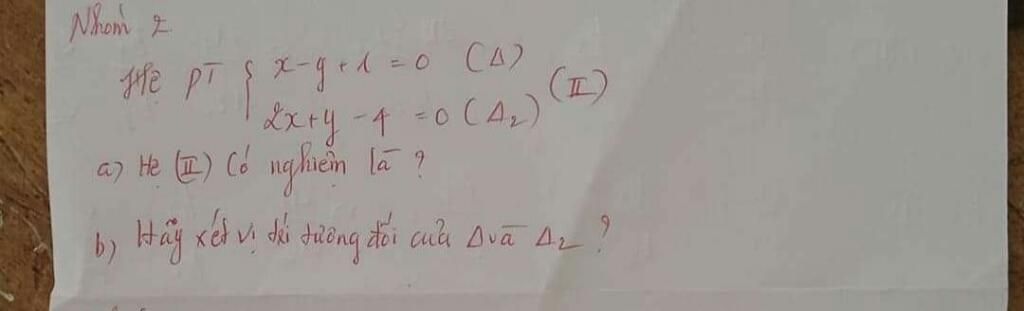 Nhóm 2.
Hệ PT { x - y + 1 = 0 (Δ)
2x + y - 4 = 0 (Δ₂) (II)
a) Hệ (II) Có nghiệm là ?
b) Hãy xét vị trí tương đối của Δ và Δ₂ ?